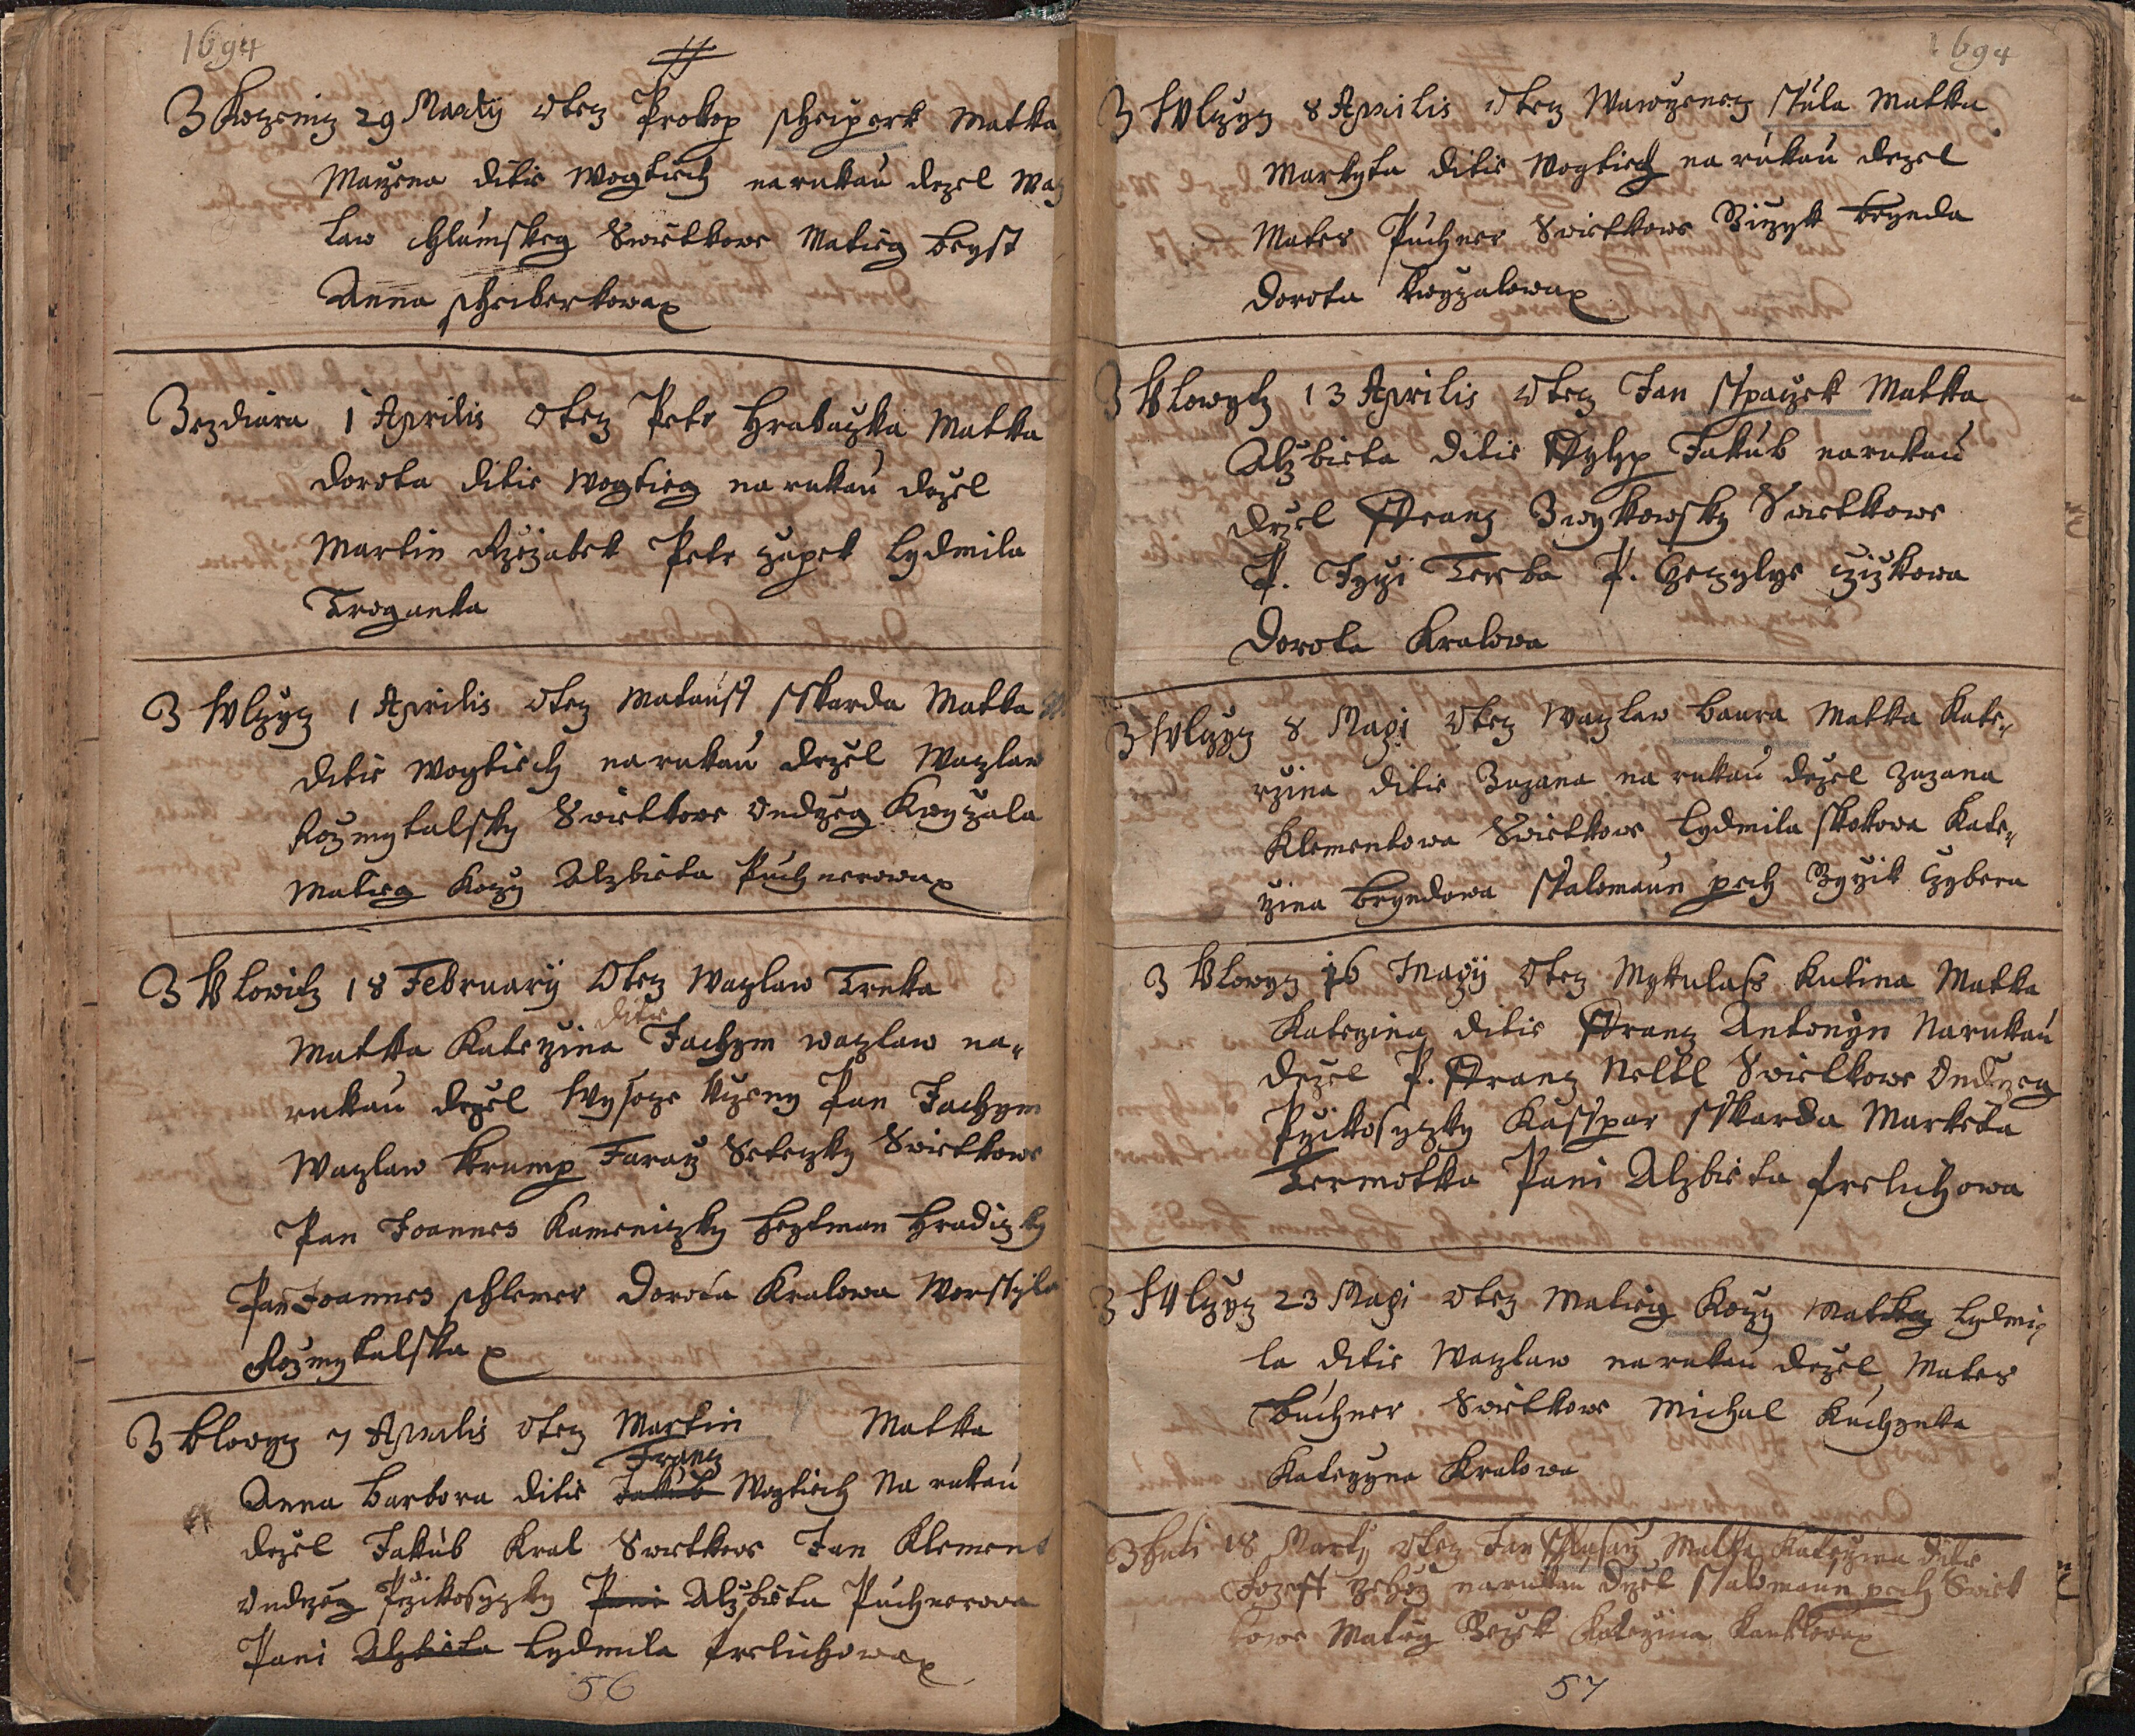 1694
Z 29 Martij Otecz Prokop Scheiperk Matka
Maržena ditie Wogtiech na rukau držel Wacz
law Chlumskeg Swietkowe Matieg Beyst
Anna Scheiberkowa
Zezdiara 1 Aprilis Otecz Petr Hrabaczka Matka
Dorota ditie Wogtieg na rukau držel
MartinRžežabek Petr Czapek Lydmila
Troganka
Z Wlczycz 1 Aprilis Otecz Matausch Sskarda Matka
ditie Wogtiech na rukau držel Waczlaw
Rozmytalsky Swietkowe Ondržeg Kwyczala
Matieg Koczy Alzbieta Puchnerowa
Z Blowitz 18 February Otecz Waczlaw Trnka
ditie
Matka Kateržina Jachym Waczlaw na
rukau držel Wysocze Pan Jachym
Waczlaw Krump Fararz Seteczky Swietkowe
Pan Joannes Kameniczky Heytman Hradiczky
Pan Joannes Schlemer Dorota Kralowa Worssyla
Rozmytalska
Z Blowycz 7 Aprilis Otecz Martin Matka
Francz
Anna Barbora ditie Jakub Wogtiech Na rukau
držel Jakub Kral Swietkowe Jan Klement
Ondržeg Pržikosyczky Pani Alžbieta Puchnerowa
Pani Alzbieta Lydmila Frelichowa
56
1694
Z Wlczycz 8 Aprilis Otecz Wawrženecz Skala Matka
Markyta ditie Wogtiech na rukau držel
Mates Puchner Swietkowe Brynda
Dorota Kwyczalowa
Z Blowytz 13 Aprilis Otecz Jan Sspaczek Matka
Alzbieta ditie Fylyp Jakub na rukau
držel Francz Zwykowsky Swietkowe
P. Jyrži Terba P. Czecylye Cziczkowa
Dorota Kralowa
Z Wlczycz 8 Magi Otecz Waczlaw Baura Matka Kate
ržina ditie Zuzana na rukau držel Zuzana
Klementowa Swietkowe Lydmila Skokowa Kate
ržina Bryndowa Ssalomaun Pech Czybera
Z Blowycz 16 Magij Otecz Mykulass Kutina Matka
Kateržina ditie Francz Antonyn Na rukau
držel P. Francz Neltl Swietkowe Ondržeg
Pržikosyczky Kasspar Sskarda Marketa
Termotka Pani Alzbieta Frelichowa
Z Wlczycz 23 Magi Otecz Matieg Koczy Matka Lydmi
la ditie Waczlaw na rukau držel Mates
Buchner Swietkowe Michal Kuchynka
Kateržyna Kralowa
Z 18 Martij Otecz Jan Matka Kateržina ditie
Jozeff na rukau držel Ssalomaun Pech Swiet
kowe Matieg Kateržina
57